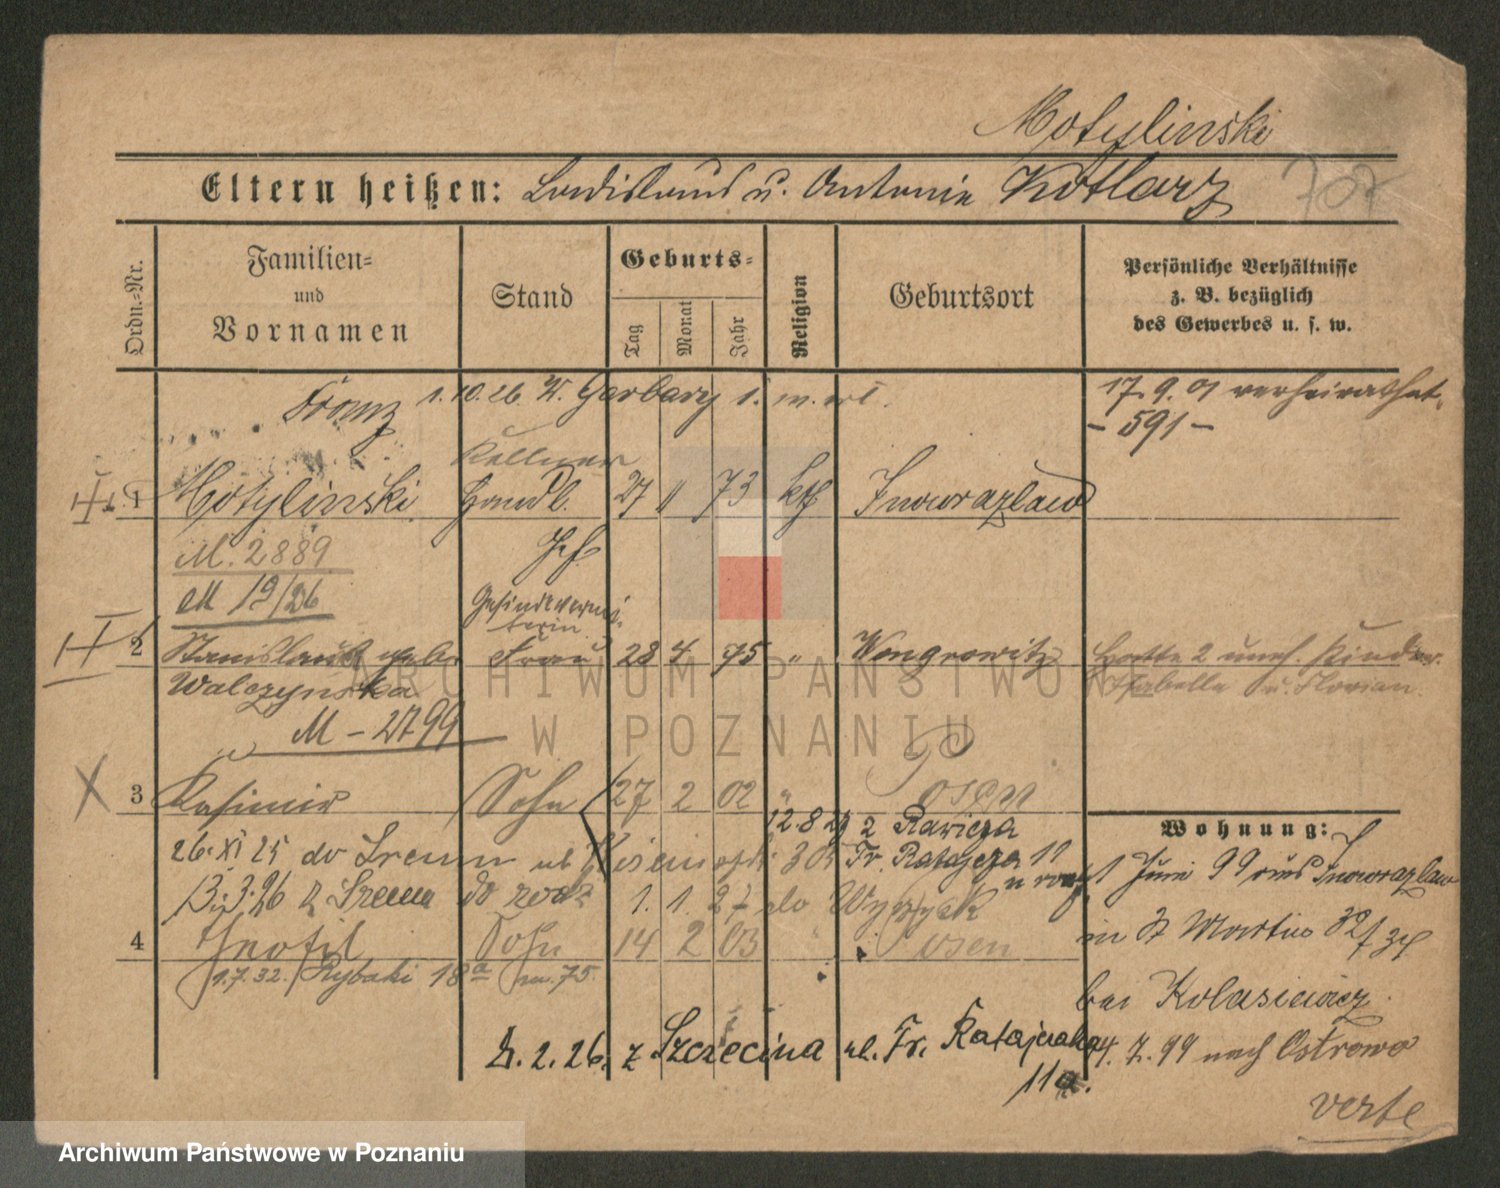 Motylinski
Eltern heißen: Ladislaus u. Antonie Kotlarz
707
Ordn.-Nr.
Familien-
und
Vornamen
Stand
Geburts-
Tag
Monat
Jahr
Religion
Geburtsort
Persönliche Verhältnisse
z. B. bezüglich
des Gewerbes u. s. w.
Franz
1.10.26 W. Garbary 1.
17.9.01 verheirathet
- 591 -
Kellner
1 Motylinski Handl. 27 11 73 kth Inowrazlaw
Geh.
M. 2889
M 19/26
2 Stanislaus geb. Frau 28 4 75 " Wongrowitz
Walczynska
Hatte 2 uneh. Kinder
Isabella u. Florian.
M - 2799
3 Kasimir Sohn 27 2 02 " Posen
12.8.27 z Rawicza
26.XI 25 do Śremu ul 305 Fr. Ratajcza 11
13.3.26 z Śrema do 1.1.27 do Wyrzysk
4 Theofil Sohn 14 2 03 " Posen
1.7.32. Rybaki 18a m. 75.
2.26. z Szczecina ul. Fr. Ratajczaka
11a.
Wohnung:
Juni 99 aus Inowrazlaw
in St Martin 32/34
bei Kolasiewicz
4.7.99 nach Ostrowo
verte
ARCHIWUM PAŃSTWOW
W POZNANIU
Archiwum Państwowe w Poznaniu